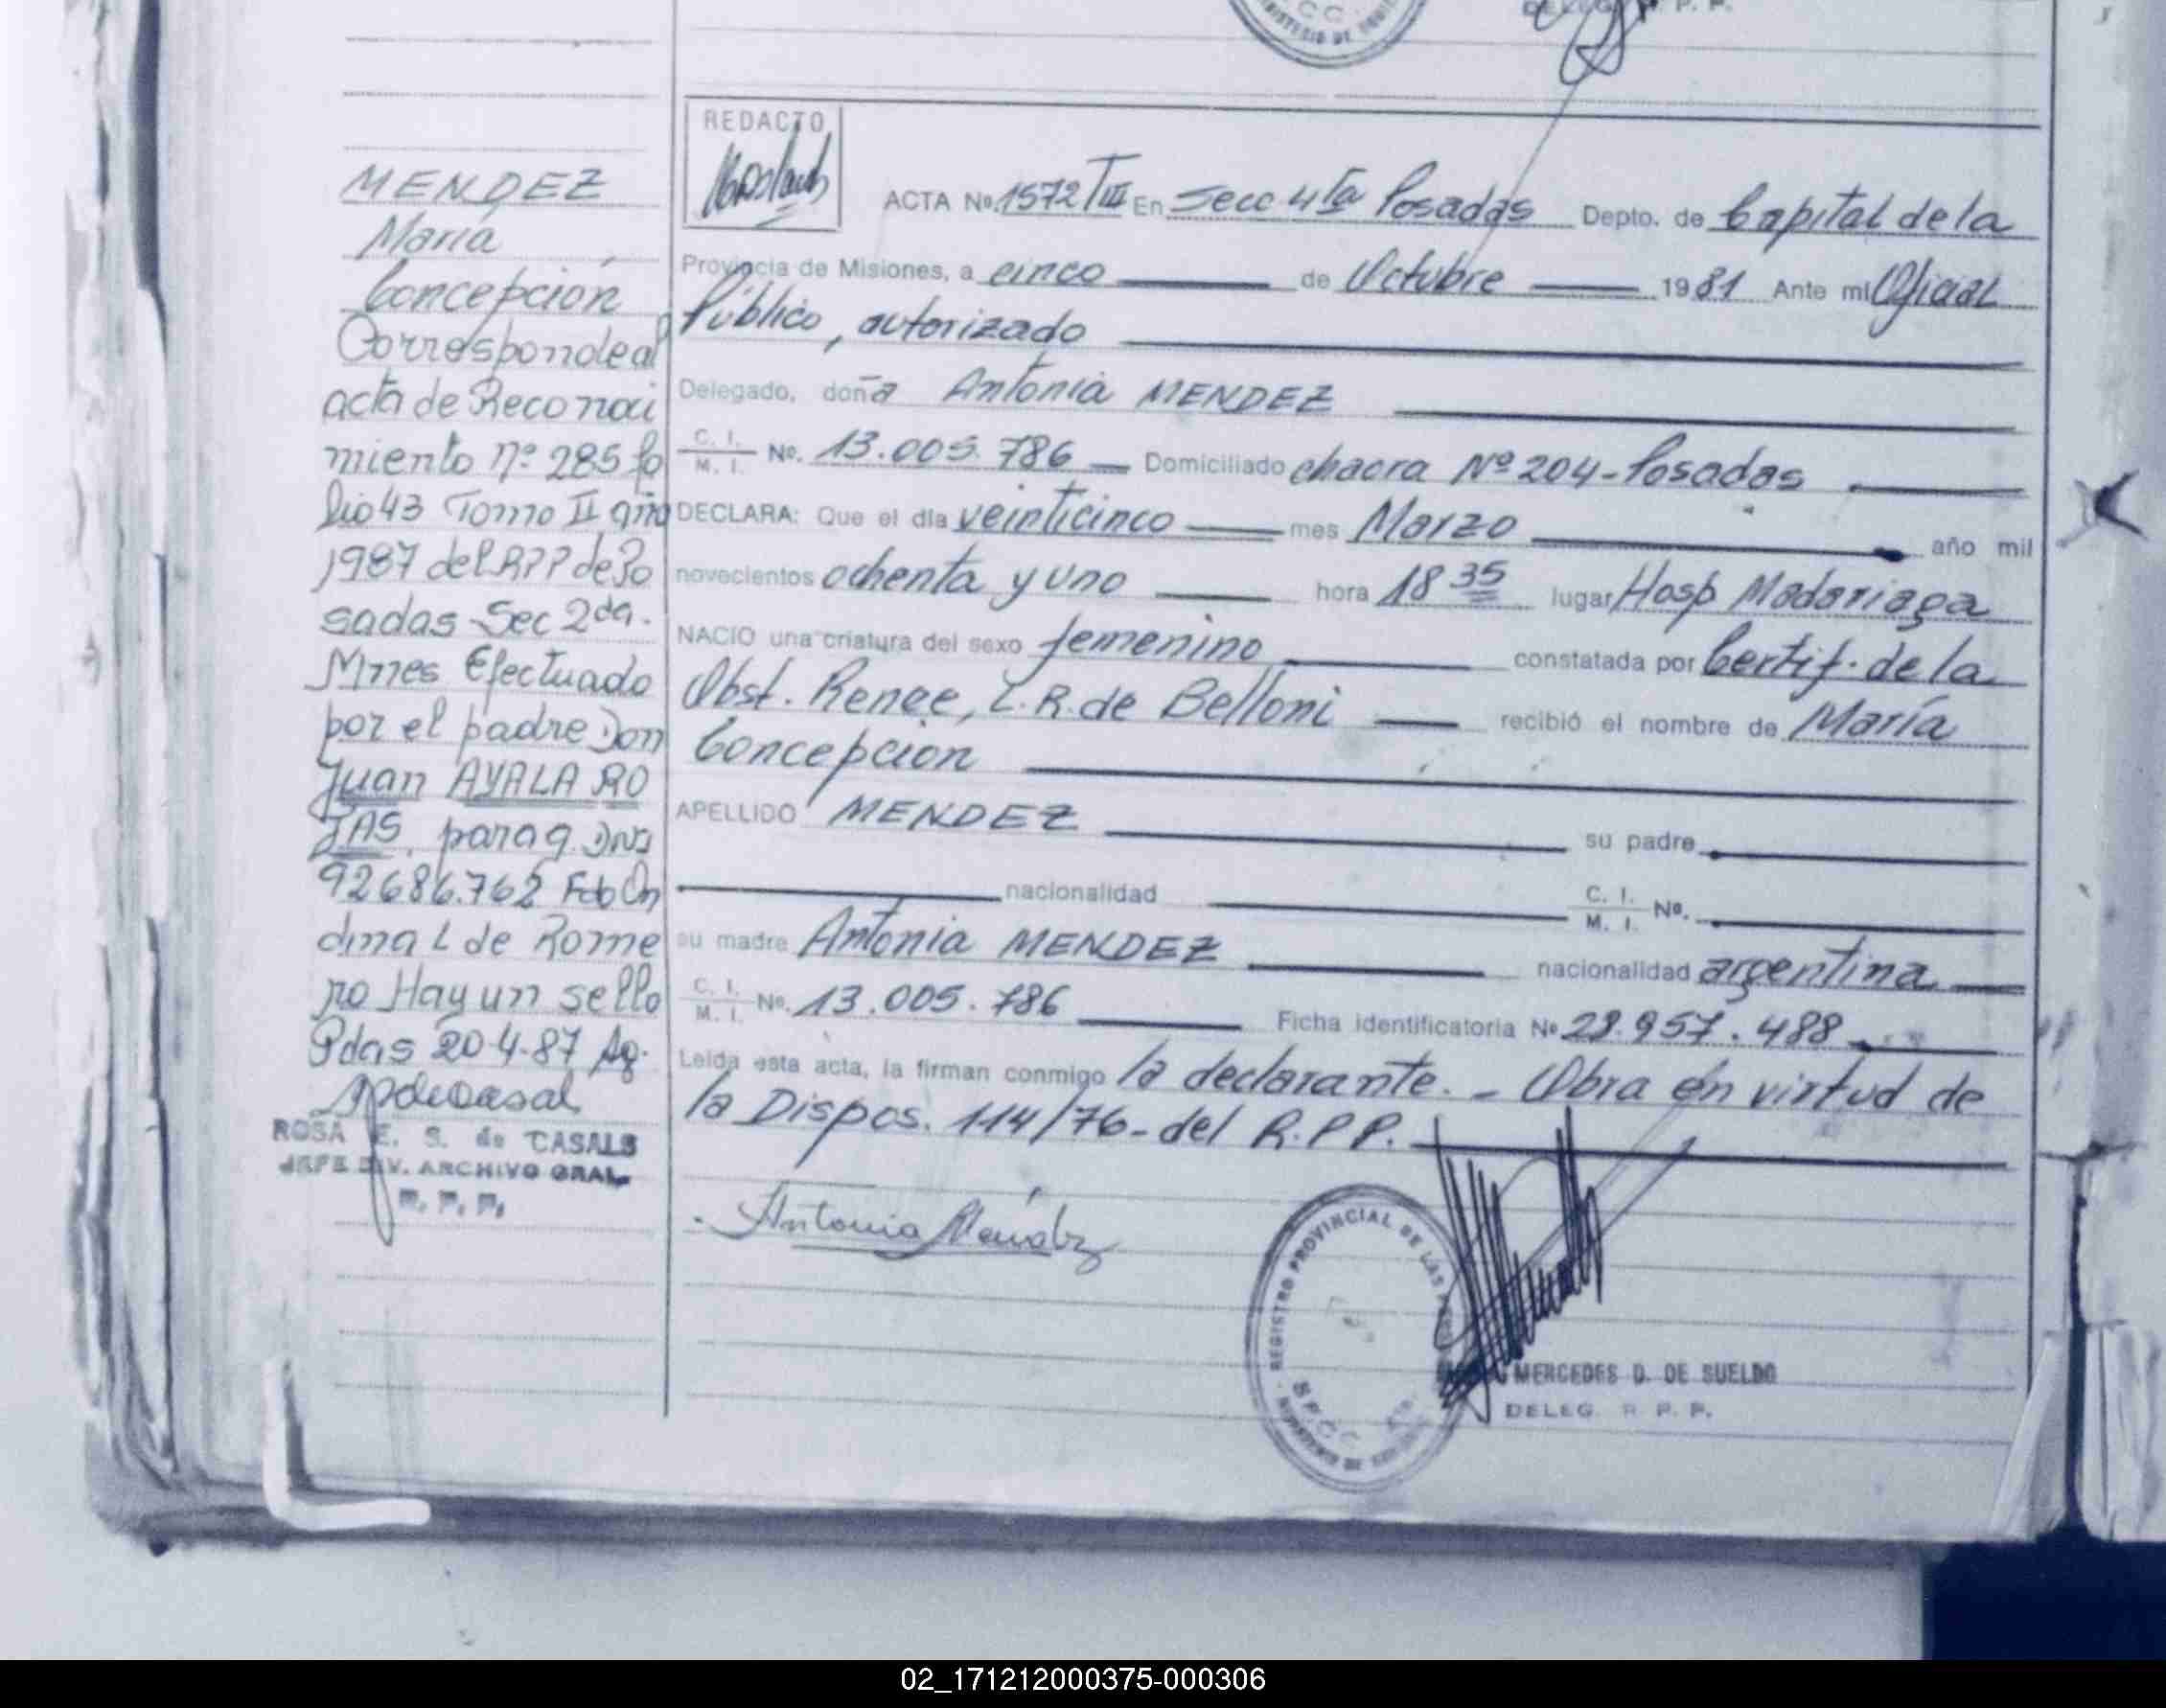 MENDEZ
María
Concepción
Corresponde al
acta de Reconoci
miento nº 285 fo
lio 43 Tomo II año
1987 del RPP de Po
sadas Sec 2da.
Mnes Efectuado
por el padre Don
Juan AYALA RO
JAS, parag. DNI
92686.762 Fdo
dina L de Rome
ro Hay un sello
Pdas 20-4-87
ROSA E. S. de CASALS
JEFE DIV. ARCHIVO GRAL.
R. P. P.
DELEG. R. P. P.
REDACTO
ACTA Nº. 1572 TIII En Secc 4ta Posadas Depto. de Capital de la
Provincia de Misiones, a cinco de Octubre 1981 Ante mi Oficial
Público, autorizado
Delegado, doña Antonia MENDEZ
C. I. M. I. Nº. 13.005.786 Domiciliado chacra Nº 204-Posadas
DECLARA: Que el día veinticinco mes Marzo año mil
novecientos ochenta y uno hora 18 35 lugar Hosp Madariaga
NACIO una criatura del sexo femenino constatada por Certif. de la
Obst. Renee, L.R. de Belloni recibió el nombre de María
Concepción
APELLIDO MENDEZ su padre
nacionalidad C. I. M. I. Nº.
su madre Antonia MENDEZ nacionalidad argentina
C. I. M. I. Nº. 13.005.786 Ficha identificatoria Nº 28.957.488
Leída esta acta, la firman conmigo la declarante. - Obra en virtud de
la Dispos. 114/76-del R.P.P.
Antonia Mendez
REGISTRO PROVINCIAL DE LAS
MERCEDES D. DE SUELDO
DELEG. R. P. P.
02_171212000375-000306